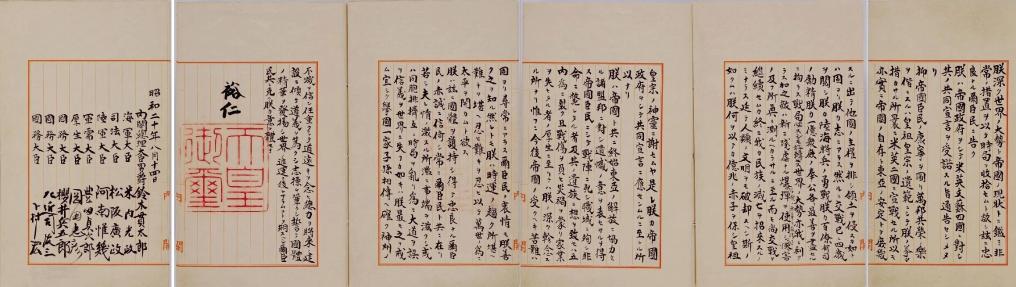 朕深ク世界ノ大勢ト帝國ノ現状トニ鑑ミ非
常ノ措置ヲ以テ時局ヲ收拾セムト欲シ茲ニ忠
良ナル爾臣民ニ告ク
朕ハ帝國政府ヲシテ米英支蘇四國ニ對シ
其ノ共同宣言ヲ受諾スル旨通告セシメタ
リ
抑〻帝國臣民ノ康寧ヲ圖リ萬邦共榮ノ樂
ヲ偕ニスルハ皇祖皇宗ノ遺範ニシテ朕ノ拳々
措カサル所曩ニ米英二國ニ宣戰セル所以モ
亦實ニ帝國ノ自存ト東亞ノ安定トヲ庶幾
スルニ出テ他國ノ主權ヲ排シ領土ヲ侵スカ如キ
ハ固ヨリ朕カ志ニアラス然ルニ交戰已ニ四歳
ヲ閲シ朕カ陸海將兵ノ勇戰朕カ百僚有司
ノ勵精朕カ一億衆庶ノ奉公各〻最善ヲ盡セルニ
拘ラス戰局必スシモ好轉セス世界ノ大勢亦我ニ利
アラス加之敵ハ新ニ殘虐ナル爆彈ヲ使用シテ頻ニ無辜ヲ殺傷シ慘害
ノ及フ所眞ニ測ルヘカラサルニ至ル而モ尚交戰ヲ
繼續セムカ終ニ我カ民族ノ滅亡ヲ招來スルノ
ミナラス延テ人類ノ文明ヲモ破却スヘシ斯ノ
如クムハ朕何ヲ以テカ億兆ノ赤子ヲ保シ皇祖
皇宗ノ神靈ニ謝セムヤ是レ朕カ帝國
政府ヲシテ共同宣言ニ應セシムルニ至レル所
以ナリ
朕ハ帝國ト共ニ終始東亞ノ解放ニ協力セ
ル諸盟邦ニ對シ遺憾ノ意ヲ表セサルヲ得
ス帝國臣民ニシテ戰陣ニ死シ職域ニ殉シ非
命ニ斃レタル者及其ノ遺族ニ想ヲ致セハ五
内爲ニ裂ク且戰傷ヲ負ヒ災禍ヲ蒙リ家業
ヲ失ヒタル者ノ厚生ニ至リテハ朕ノ深ク軫念ス
ル所ナリ惟フニ今後帝國ノ受クヘキ苦難ハ
固ヨリ尋常ニアラス爾臣民ノ衷情モ朕善
ク之ヲ知ル然レトモ朕ハ時運ノ趨ク所堪ヘ
難キヲ堪ヘ忍ヒ難キヲ忍ヒ以テ萬世ノ爲ニ
太平ヲ開カムト欲ス
朕ハ茲ニ國體ヲ護持シ得テ忠良ナル爾臣
民ノ赤誠ニ信倚シ常ニ爾臣民ト共ニ在リ
若シ夫レ情ノ激スル所濫ニ事端ヲ滋クシ或
ハ同胞排擠互ニ時局ヲ亂リ爲ニ大道ヲ誤
リ信義ヲ世界ニ失フカ如キハ朕最モ之ヲ戒
ム宜シク擧國一家子孫相傳ヘ確ク神州ノ
不滅ヲ信シ任重クシテ道遠キヲ念ヒ總力ヲ將來ノ建
設ニ傾ケ道義ヲ篤クシ志操ヲ鞏クシ誓テ國體
ノ精華ヲ發揚シ世界ノ進運ニ後レサラムコトヲ期スヘシ爾臣
民其レ克ク朕カ意ヲ體セヨ
裕仁
天皇御璽
昭和二十年八月十四日
内閣總理大臣男爵 鈴木貫太郎
海軍大臣 米内光政
司法大臣 松阪廣政
陸軍大臣 阿南惟幾
軍需大臣 豐田貞次郎
厚生大臣 岡田忠彦
國務大臣 櫻井兵五郎
國務大臣
國務大臣 下村宏